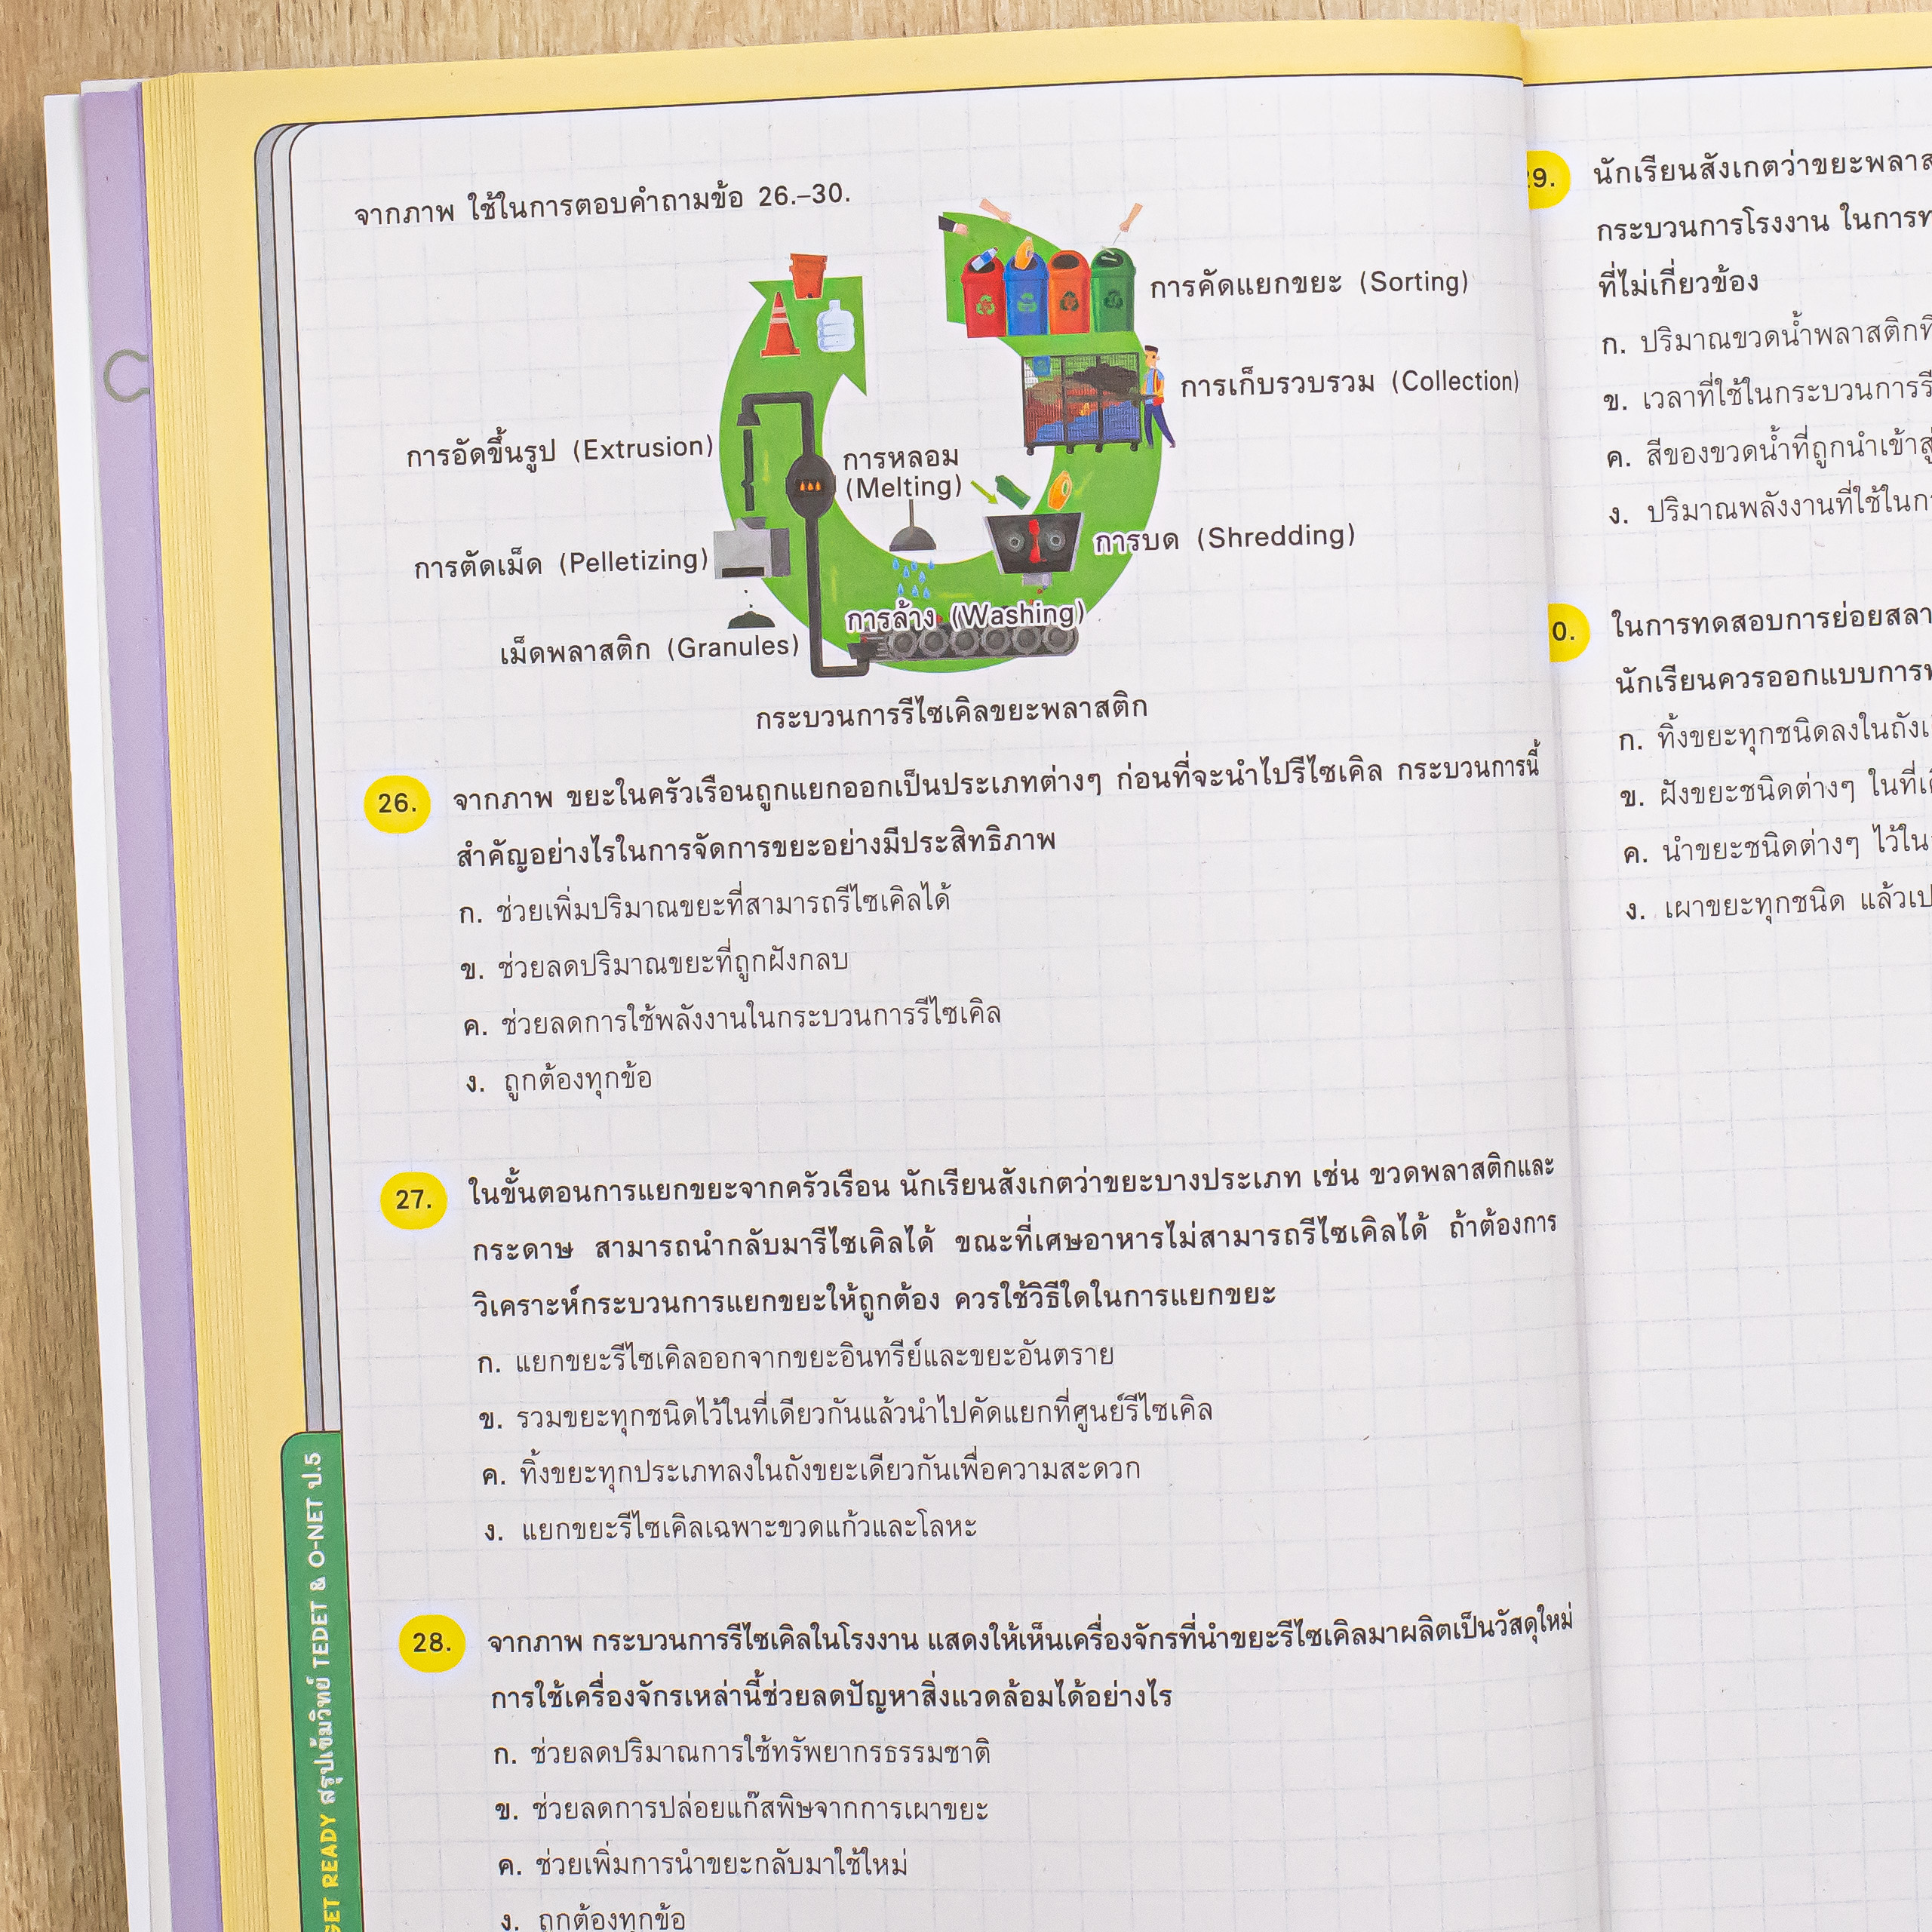 จากภาพ ใช้ในการตอบคำถามข้อ 26.–30.
การคัดแยกขยะ (Sorting)
การเก็บรวบรวม (Collection)
การอัดขึ้นรูป (Extrusion)
การหลอม
(Melting)
การบด (Shredding)
การตัดเม็ด (Pelletizing)
การล้าง (Washing)
เม็ดพลาสติก (Granules)
กระบวนการรีไซเคิลขยะพลาสติก
26. จากภาพ ขยะในครัวเรือนถูกแยกออกเป็นประเภทต่างๆ ก่อนที่จะนำไปรีไซเคิล กระบวนการนี้
สำคัญอย่างไรในการจัดการขยะอย่างมีประสิทธิภาพ
ก. ช่วยเพิ่มปริมาณขยะที่สามารถรีไซเคิลได้
ข. ช่วยลดปริมาณขยะที่ถูกฝังกลบ
ค. ช่วยลดการใช้พลังงานในกระบวนการรีไซเคิล
ง. ถูกต้องทุกข้อ
27. ในขั้นตอนการแยกขยะจากครัวเรือน นักเรียนสังเกตว่าขยะบางประเภท เช่น ขวดพลาสติกและ
กระดาษ สามารถนำกลับมารีไซเคิลได้ ขณะที่เศษอาหารไม่สามารถรีไซเคิลได้ ถ้าต้องการ
วิเคราะห์กระบวนการแยกขยะให้ถูกต้อง ควรใช้วิธีใดในการแยกขยะ
ก. แยกขยะรีไซเคิลออกจากขยะอินทรีย์และขยะอันตราย
ข. รวมขยะทุกชนิดไว้ในที่เดียวกันแล้วนำไปคัดแยกที่ศูนย์รีไซเคิล
ค. ทิ้งขยะทุกประเภทลงในถังขยะเดียวกันเพื่อความสะดวก
ง. แยกขยะรีไซเคิลเฉพาะขวดแก้วและโลหะ
28. จากภาพ กระบวนการรีไซเคิลในโรงงาน แสดงให้เห็นเครื่องจักรที่นำขยะรีไซเคิลมาผลิตเป็นวัสดุใหม่
การใช้เครื่องจักรเหล่านี้ช่วยลดปัญหาสิ่งแวดล้อมได้อย่างไร
ก. ช่วยลดปริมาณการใช้ทรัพยากรธรรมชาติ
ข. ช่วยลดการปล่อยแก๊สพิษจากการเผาขยะ
ค. ช่วยเพิ่มการนำขยะกลับมาใช้ใหม่
ง. ถูกต้องทุกข้อ
GET READY สรุปเข้มวิทย์ TEDET & O-NET ป.5
29. นักเรียนสังเกตว่าขยะพลาส
กระบวนการโรงงาน ในการท
ที่ไม่เกี่ยวข้อง
ก. ปริมาณขวดน้ำพลาสติกที่
ข. เวลาที่ใช้ในกระบวนการรี
ค. สีของขวดน้ำที่ถูกนำเข้าสู่
ง. ปริมาณพลังงานที่ใช้ใน
0. ในการทดสอบการย่อยสลา
นักเรียนควรออกแบบการ
ก. ทิ้งขยะทุกชนิดลงในถัง
ข. ฝังขยะชนิดต่างๆ ในที่
ค. นำขยะชนิดต่างๆ ไว้ใน
ง. เผาขยะทุกชนิด แล้ว